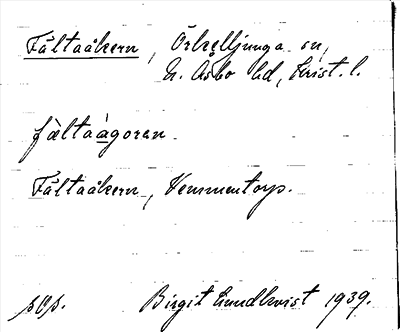 Fältaåkern, Örkelljunga sn,
N. Åsbo hd, Krist. l.
fàltaågoran
Fältaåkern, Vemmentorp.
pÖp. Birgit Lundkvist 1939.